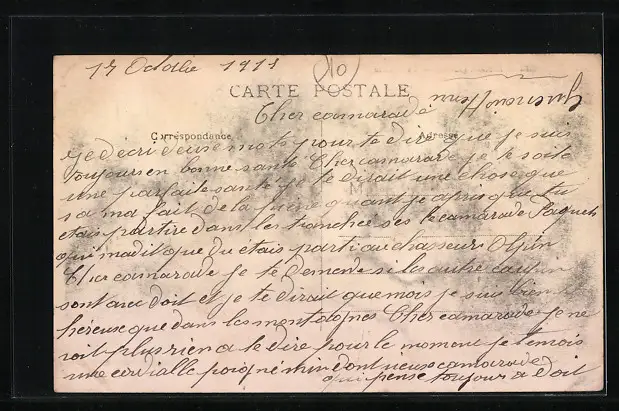 17 Octobre 1911
10
CARTE POSTALE
Cher camarade
Correspondance
Adresse
je décri deuse mots pour te dire que je suis
toujours en bonne santé Cher camarade je te soite
une parfaite santé je te dirait une chose que
sa ma fait de la peine quant je apris que tu
etais partire dans les tranchee ses le camarade Paquet
qui madit que du etais parti au chasseur Alpin
Cher camarade je te demende si les autre
sont avec doit et je te dirait que mois je suis bien
héreuse que dans les montagnes Cher camarade je ne
voit plus rien a te dire pour le moment je temois
une cordialle poigné min dont vieux camarade
qui pense toujour a doit